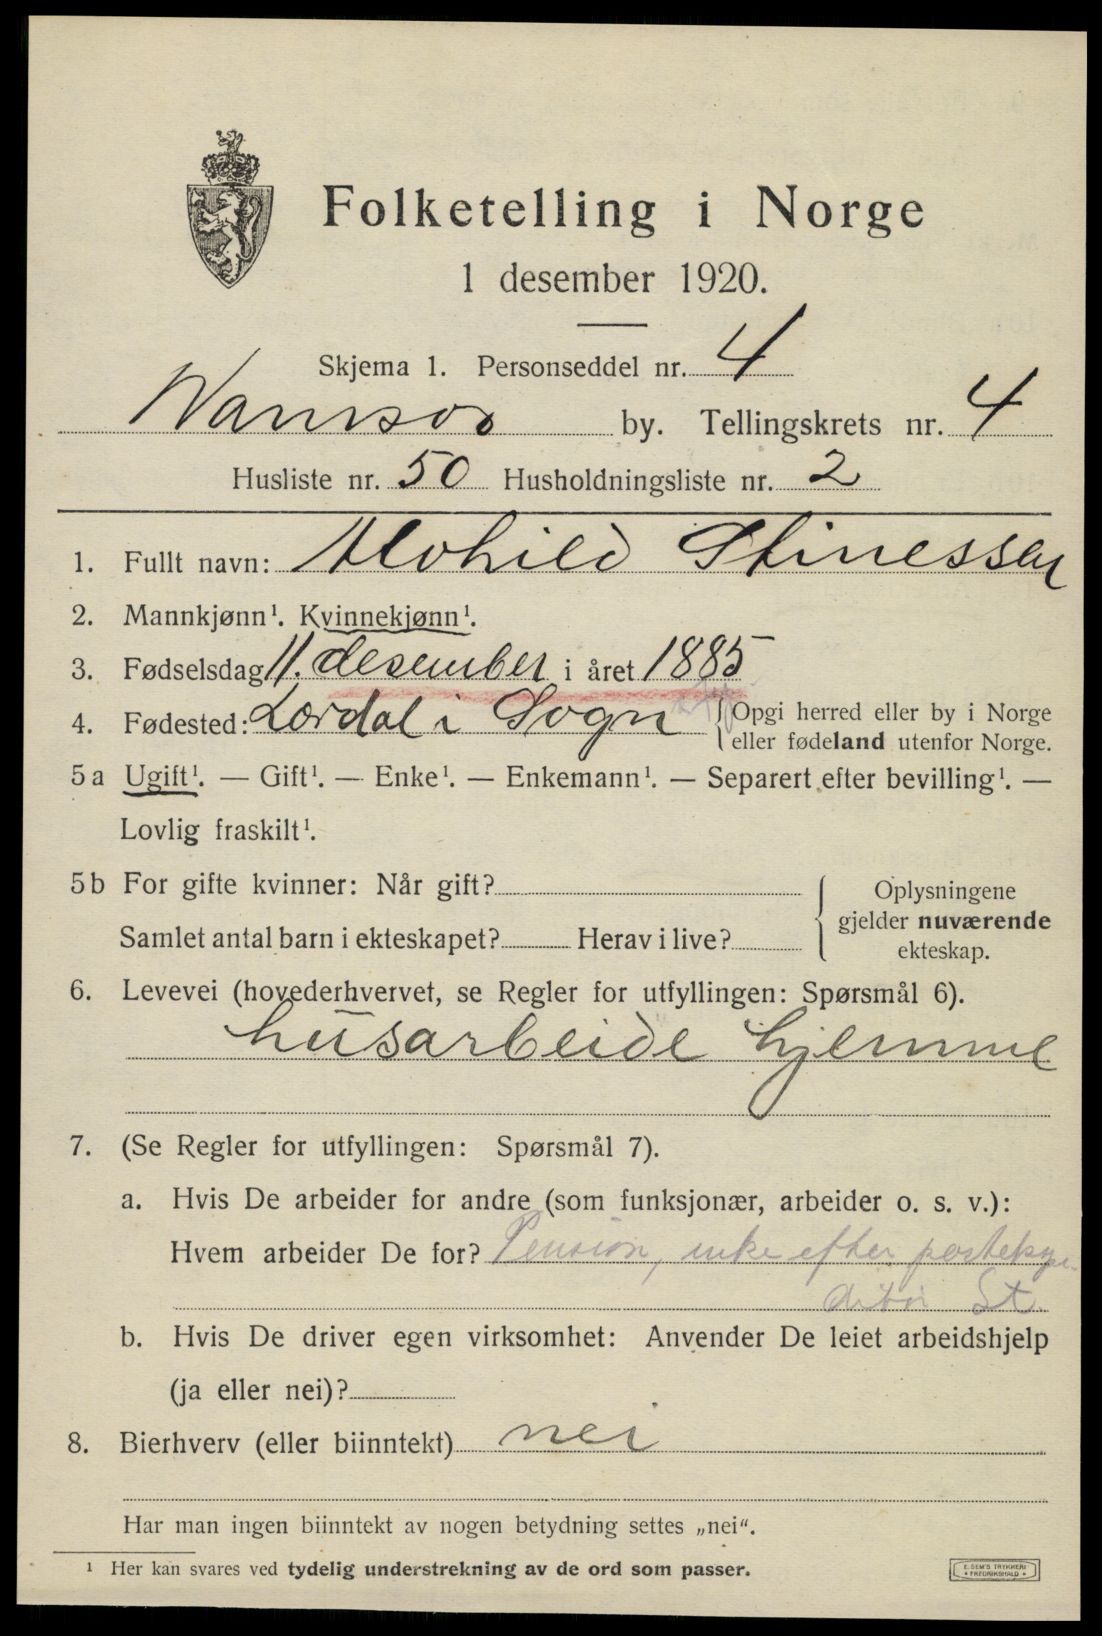 Folketelling i Norge
1 desember 1920.
Skjema 1. Personseddel nr. 4
Namsos by. Tellingskrets nr. 4
Husliste nr. 50 Husholdningsliste nr. 2
1. Fullt navn: Alvhild Stinessen
2. Mannkjønn¹. Kvinnekjønn¹.
3. Fødselsdag 11. desember i året 1885
4. Fødested: Lærdal i Sogn {Opgi herred eller by i Norge
eller fødeland utenfor Norge.
5a Ugift¹. — Gift¹. — Enke¹. — Enkemann¹. — Separert efter bevilling¹. —
Lovlig fraskilt¹.
5b For gifte kvinner: Når gift?
Samlet antal barn i ekteskapet? Herav i live?
Oplysningene
gjelder nuværende
ekteskap.
6. Levevei (hovederhvervet, se Regler for utfyllingen: Spørsmål 6).
husarbeide hjemme
7. (Se Regler for utfyllingen: Spørsmål 7).
a. Hvis De arbeider for andre (som funksjonær, arbeider o. s. v.):
Hvem arbeider De for? Pension, enke efter postekspe-
ditør St.
b. Hvis De driver egen virksomhet: Anvender De leiet arbeidshjelp
(ja eller nei)?
8. Bierhverv (eller biinntekt) nei
Har man ingen biinntekt av nogen betydning settes „nei“.
¹ Her kan svares ved tydelig understrekning av de ord som passer.
E. SEM'S TRYKKERI
FREDRIKSHALD